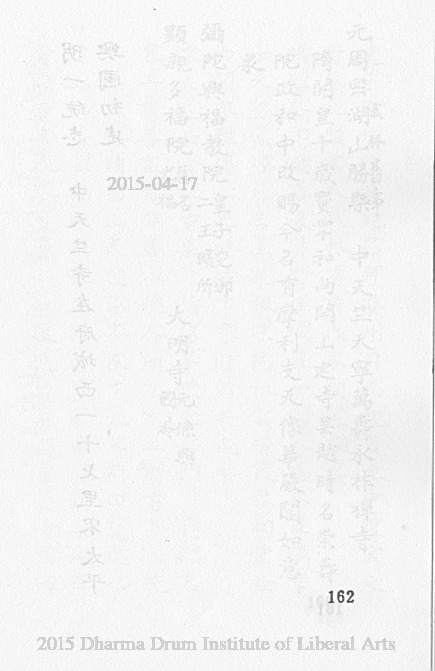 元周密湖山勝槩 武林舊事 中天竺天寧萬壽永祚禪寺
隋開皇十歲寶掌和尚開山建寺吳越時名崇壽
院政和中改賜今名有摩利支天像華嚴閣如意
泉
彌陀興福教院 皇子二王所
顯親多福院 大明寺
興國初建
明一統志 中天竺寺在府城西一十七里宋太平
2015-04-17
162
2015 Dharma Drum Institute of Liberal Arts